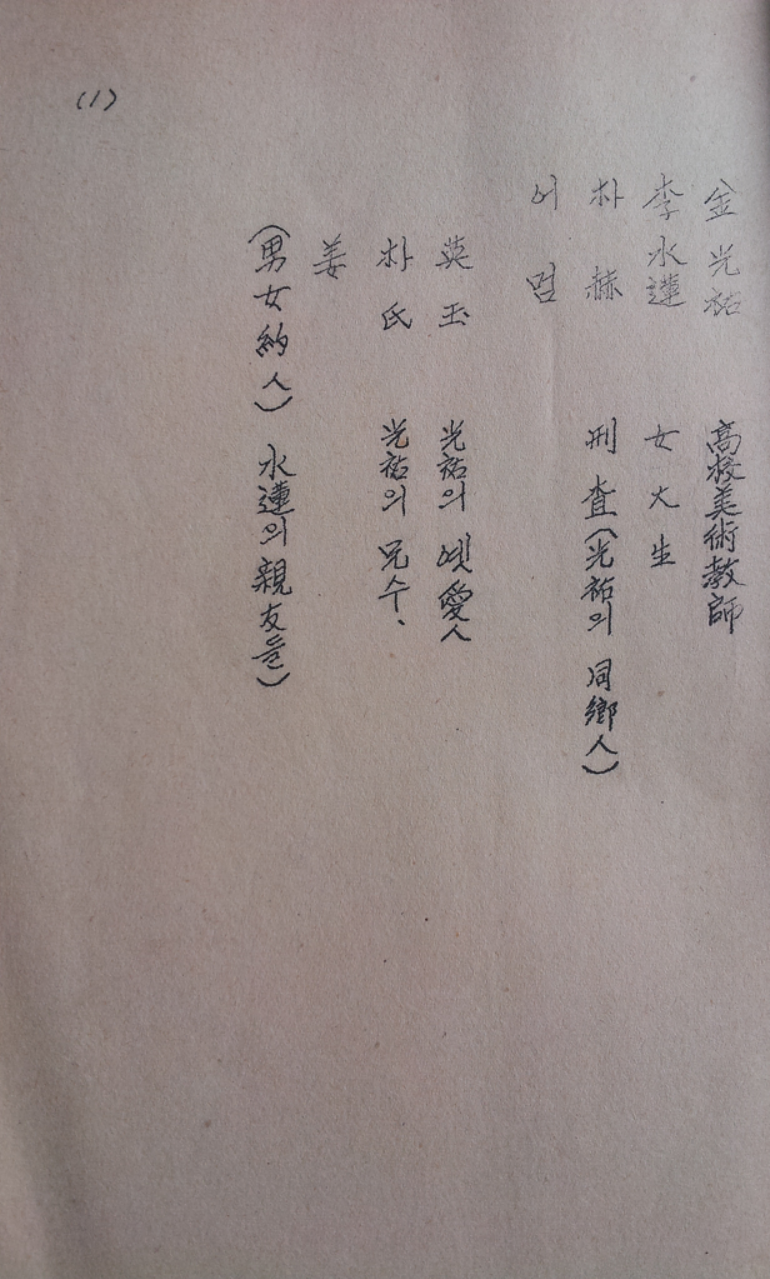 金光祐 高校美術教師
李水蓮 女大生
朴赫 刑査(光祐의 同鄕人)
어멈
英玉 光祐의 옛愛人
朴氏 光祐의 兄수.
姜
(男女約人) 水蓮의 親友들)
(1)